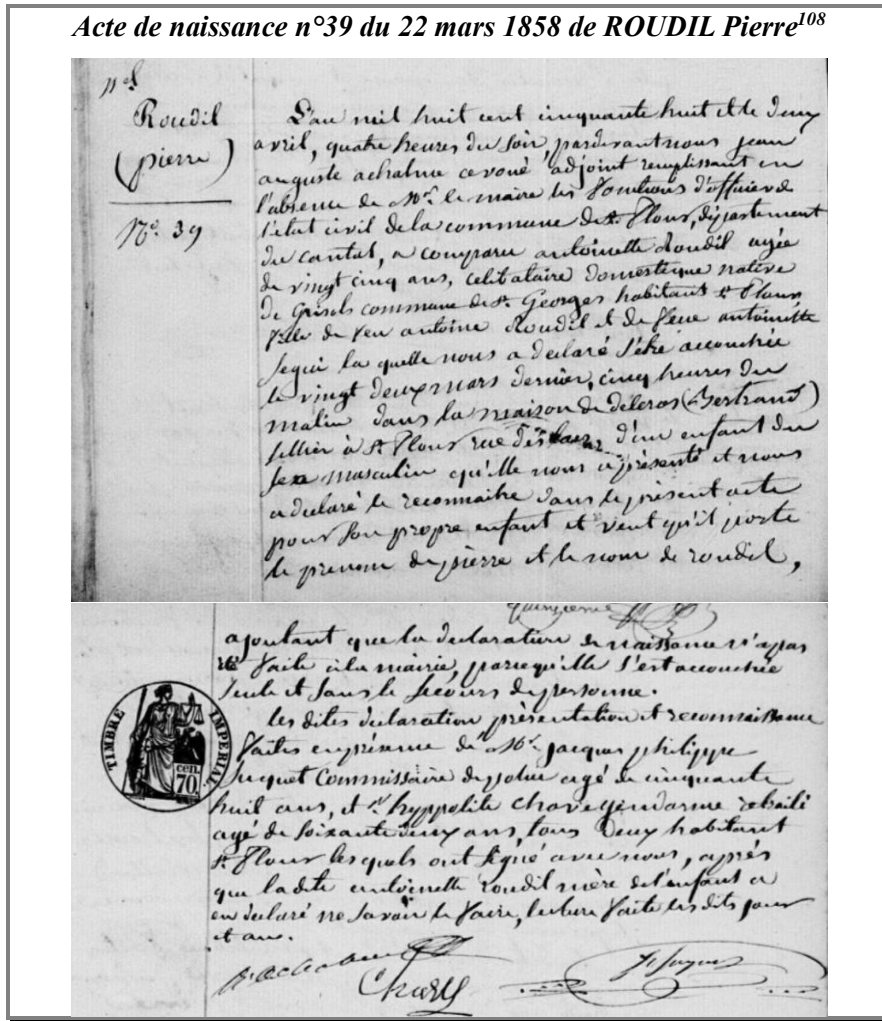 Acte de naissance n°39 du 22 mars 1858 de ROUDIL Pierre108
Roudil
(pierre)
No. 39
L'an mil huit cent cinquante huit et le deux
avril, quatre heures du soir, pardevant nous jean
auguste achalme avoué adjoint remplissant en
l'absence de Mr. le maire les fonctions d'officier de
l'état civil de la commune de St. Flour, département
du cantal, a comparu antoinette Roudil agée
de vingt cinq ans, celibataire domestique native
de Grisols commune de St. Georges habitant St. Flour
fille de feu antoine Roudil et de feue antoinette
Segui la quelle nous a declaré s'être accouchée
le vingt deux mars dernier, cinq heures du
matin dans la maison de delcros (Bertrand)
sellier à St. Flour rue des d'un enfant du
sexe masculin qu'elle nous a présenté et nous
a declaré le reconnaitre dans le présent acte
pour son propre enfant et veut qu'il porte
le prenom de pierre et le nom de roudil,
ajoutant que la declaration de naissance n'a pas
été faite à la mairie, parcequ'elle s'est accouchée
seule et sans le secours de personne.
les dites declaration présentation et reconnaissance
faites en présence de Mr. jacques philippe
juquet Commissaire de police agé de cinquante
huit ans, et sr. hyppolite chavegendarme retraité
agé de soixante deux ans, tous deux habitant
St. Flour les quels ont signé avec nous, après
que ladite antoinette roudil mère de l'enfant a
eu declaré ne savoir le faire, lecture faite les dits jour
et an.
TIMBRE IMPERIAL
70 cen.